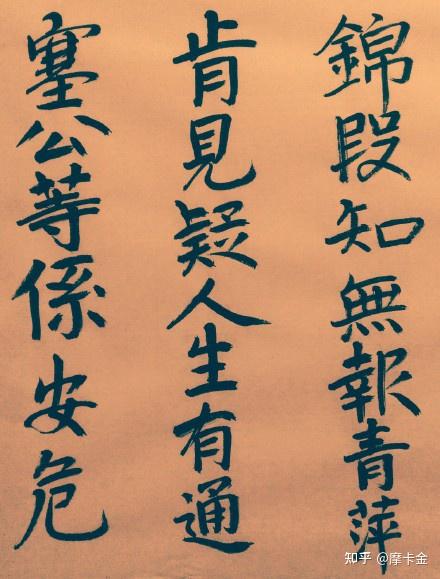 錦段知無報青萍
肯見疑人生有通
塞公等係安危
知乎 @摩卡金